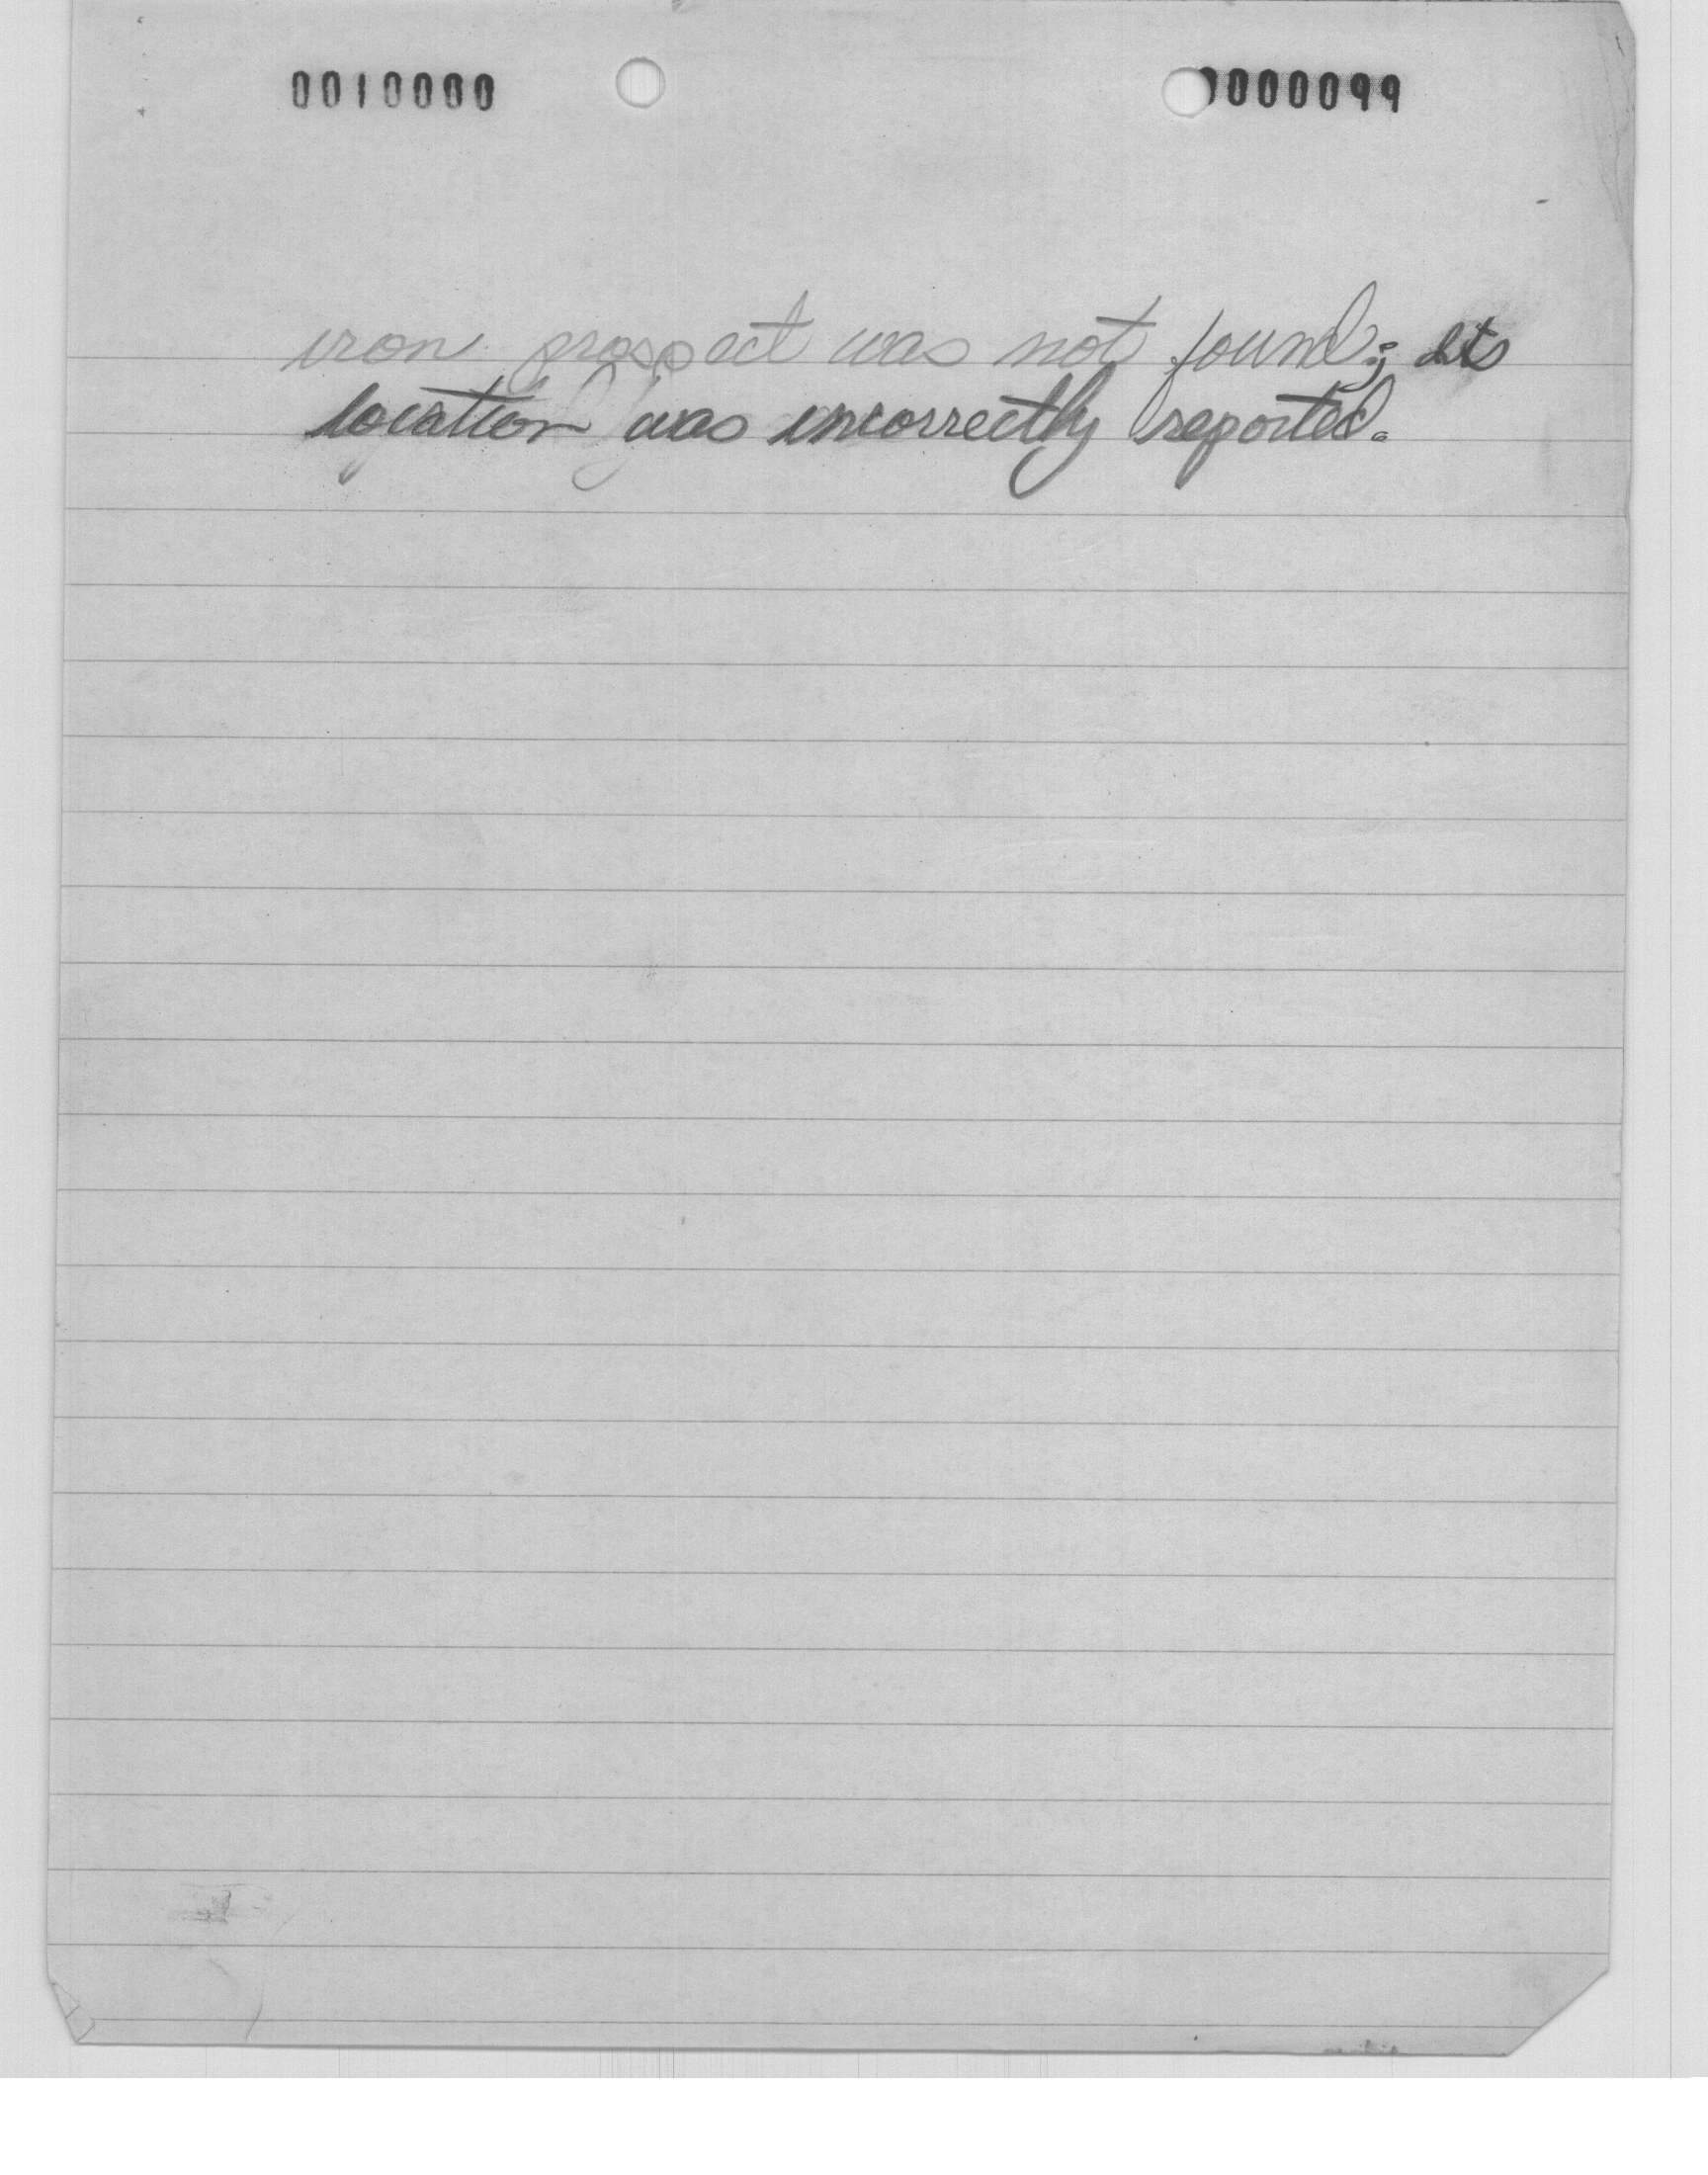 0010000 0000099
iron prospect was not found; its
location was incorrectly reported.